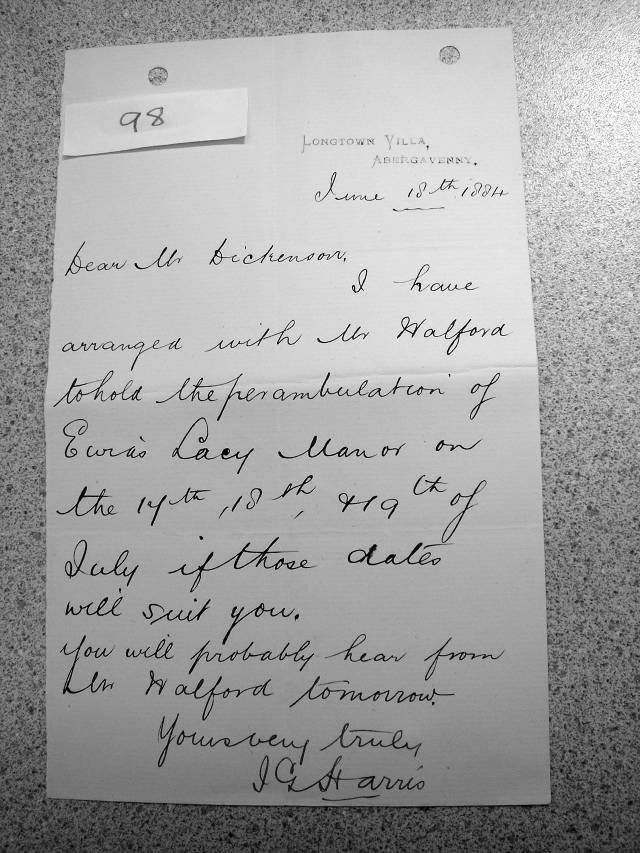 98
LONGTOWN VILLA,
ABERGAVENNY.
June 18th 1884
Dear Mr Dickenson,
I have
arranged with Mr Walford
to hold the perambulation of
Ewias Lacy Manor on
the 17th, 18th, & 19th of
July if those dates
will suit you.
You will probably hear from
Mr Walford tomorrow.
Yours very truly
J G Harris